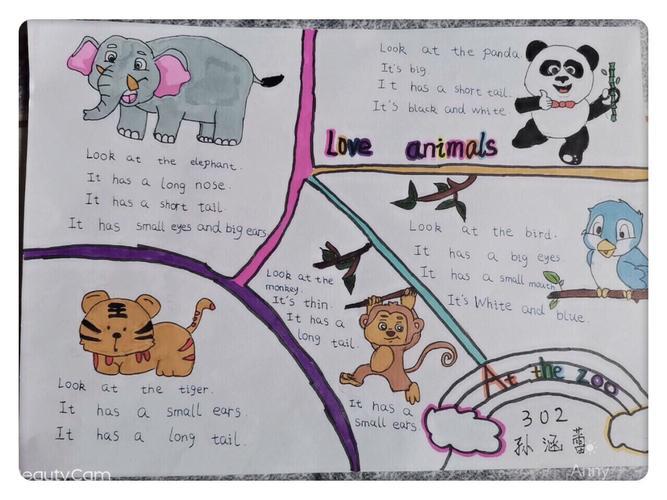 Look at the elephant.
It has a long nose.
It has a short tail.
It has small eyes and big ears.
Look at the panda.
It's big.
It has a short tail.
It's black and white
Love animals
Look at the bird.
It has a big eyes.
It has a small mouth
It's White and blue.
Look at the
monkey.
It's thin.
It has a
long tail.
It has a
small ears
Look at the tiger.
It has a small ears.
It has a long tail.
王
At the zoo
302
孙涵蕾
BeautyCam
Anny